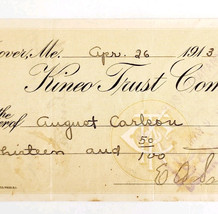 over, Me. Apr. 26 1913
Kineo Trust Com
the
er of August Carlson
hirteen and 50/100